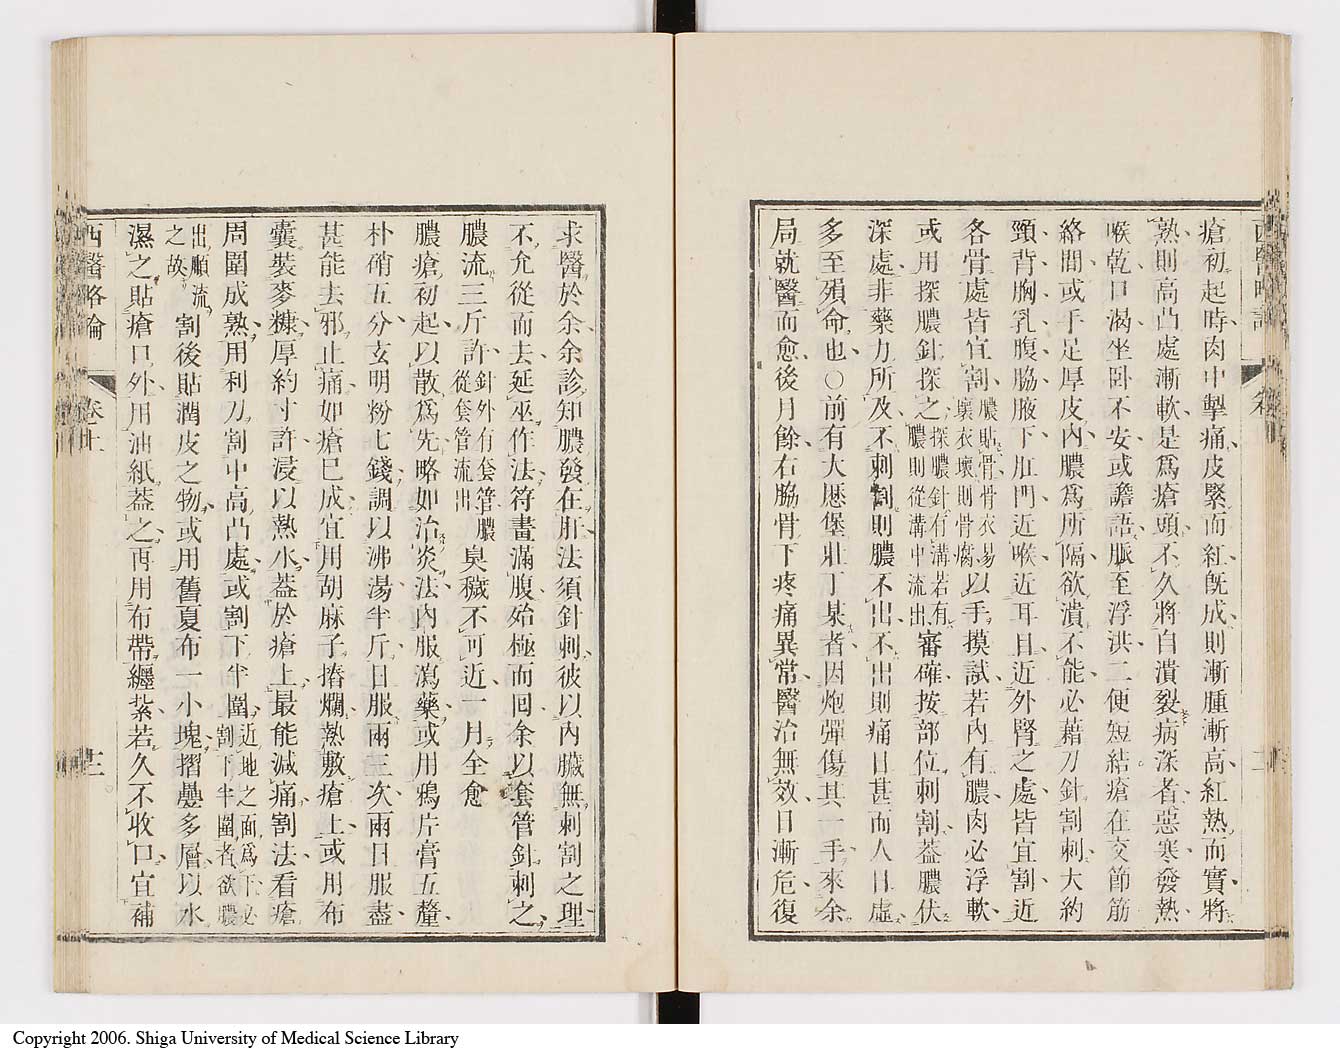 瘡初起時肉中掣痛皮緊而紅旣成則漸腫漸高紅熱而實將
熟則高凸處漸軟是爲瘡頭不久將自潰裂病深者惡寒發熱
喉乾口渴坐卧不安或譫語脈至浮洪二便短結瘡在交節筋
絡間或手足厚皮內膿爲所隔欲潰不能必藉刀針割刺大約
頸背胸乳腹脇腋下肛門近喉近耳目近外腎之處皆宜割近
各骨處皆宜割膿貼骨骨衣易壞衣壞則骨腐以手摸試若內有膿肉必浮軟
或用探膿針探之探膿針有溝若有膿則從溝中流出審確按部位刺割葢膿伏
深處非藥力所及不刺割則膿不出不出則痛日甚而人日虛
多至殞命也○前有大厯堡壯丁某者因炮彈傷其一手來余
局就醫而愈後月餘右脇骨下疼痛異常醫治無效日漸危復
求醫於余余診知膿發在肝法須針刺彼以內臟無刺割之理
不允從而去延巫作法符畫滿腹殆極而回余以套管針刺之
膿流三斤許針外有套管膿從套管流出臭穢不可近一月全愈
膿瘡初起以散爲先略如治炎法內服瀉藥或用鴉片膏五釐
朴硝五分玄明粉七錢調以沸湯半斤日服兩三次兩日服盡
甚能去邪止痛如瘡已成宜用胡麻子搗爛熱敷瘡上或用布
囊裝麥糠厚約寸許浸以熱水葢於瘡上最能減痛割法看瘡
周圍成熟用利刀割中高凸處或割下半圍近地之面爲下必割下半圍者欲膿
出順流之故割後貼潤皮之物或用舊夏布一小塊摺疊多層以水
濕之貼瘡口外用油紙葢之再用布帶纏紮若久不收口宜補
西醫略論 卷上
Copyright 2006. Shiga University of Medical Science Library